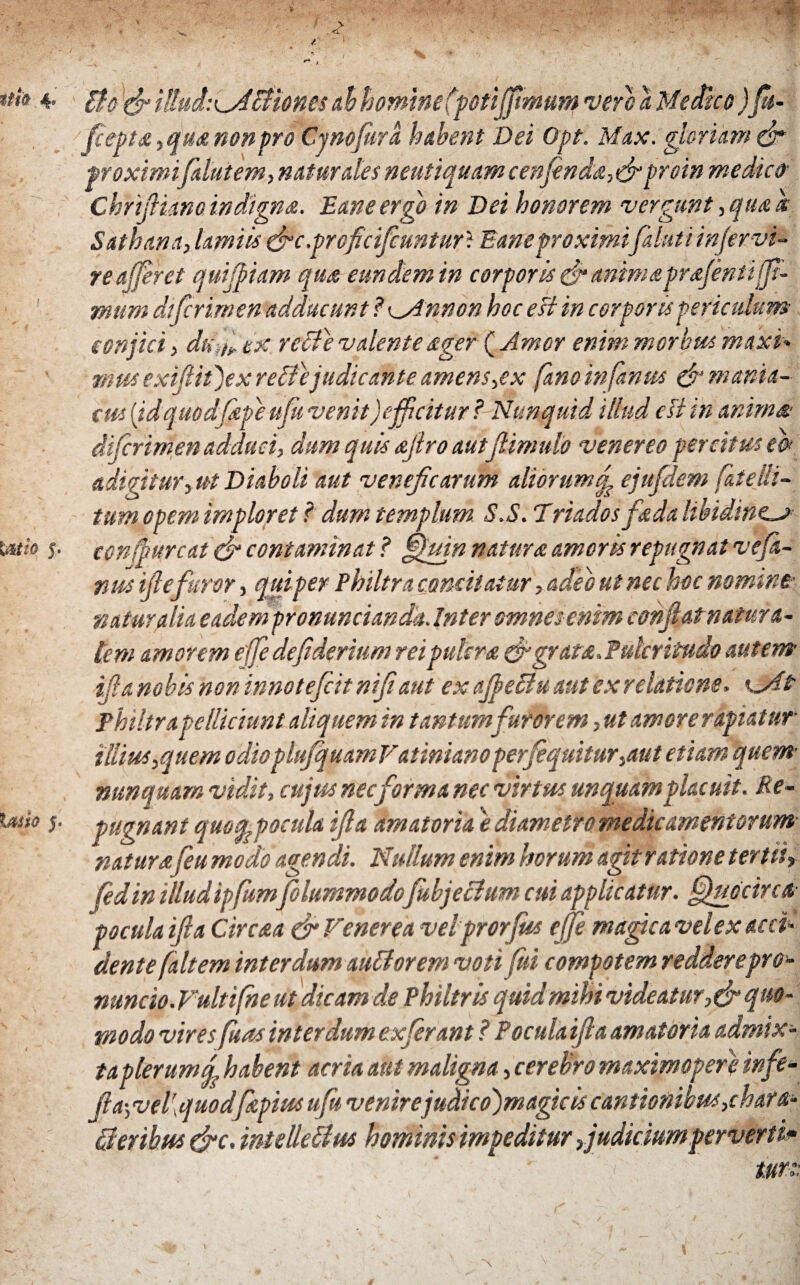 atio 4. cto & illud: Actiones ab homine (potissimum vero à Medico) su-
sceptæ, quæ non pro Cynosurâ habent Dei Opt. Max. gloriam &
proximi salutem, naturales neutiquam censendæ, & proin medico
Christiano indignæ. Eane ergò in Dei honorem vergunt, quæ à
Sathana, lamiis &c. proficiscuntur? Eane proximi saluti inservi-
re asseret quispiam quæ eundem in corporis & animæ præsentissi-
mum discrimen adducunt? Annon hoc est in corporis periculum
conjici, dum ex rectè valente æger (Amor enim morbus maxi-
mus existit) ex rectè judicante amens, ex sano insanus & mania-
cus (id quod sæpè usu venit) efficitur? Nunquid illud est in animæ
discrimen adduci, dum quis æstro aut stimulo venereo percitus eò
adigitur, ut Diaboli aut veneficarum aliorumq; ejusdem satelli-
tum opem imploret? dum templum S.S. Triados fæda libidine
tatio 5. conspurcat & contaminat? Quin naturæ amoris repugnat vesa-
nus iste furor, qui per Philtra concitatur, adeò ut nec hoc nomine
naturalia eadem pronuncianda. Inter omnes enim constat natura-
lem amorem esse desiderium rei pulcræ & gratæ. Pulcritudo autem
ista nobis non innotescit nisi aut ex aspectu aut ex relatione. At
Philtra pelliciunt aliquem in tantum furorem, ut amore rapiatur
illius, quem odio plusquam Vatiniano persequitur, aut etiam quem
nunquam vidit, cujus nec forma nec virtus unquam placuit. Re-
Ratio 5. pugnant quoq; pocula ista amatoria è diametro medicamentorum
naturæ seu modo agendi. Nullum enim horum agit ratione tertii,
sed in illud ipsum solummodo subjectum cui applicatur. Quocirca
pocula ista Circæa & Venerea vel prorsus esse magica vel ex acci-
dente saltem interdum auctorem voti sui compotem reddere pro-
nuncio. Vultisne ut dicam de Philtris quid mihi videatur, & quo-
modo vires suas interdum exserant? Pocula ista amatoria admix-
ta plerumq; habent acria aut maligna, cerebro maximopere infe-
sta; vel (quod sæpius usu venire judico) magicis cantionibus, chara-
cteribus &c. intellectus hominis impeditur, judicium perverti-
tur: